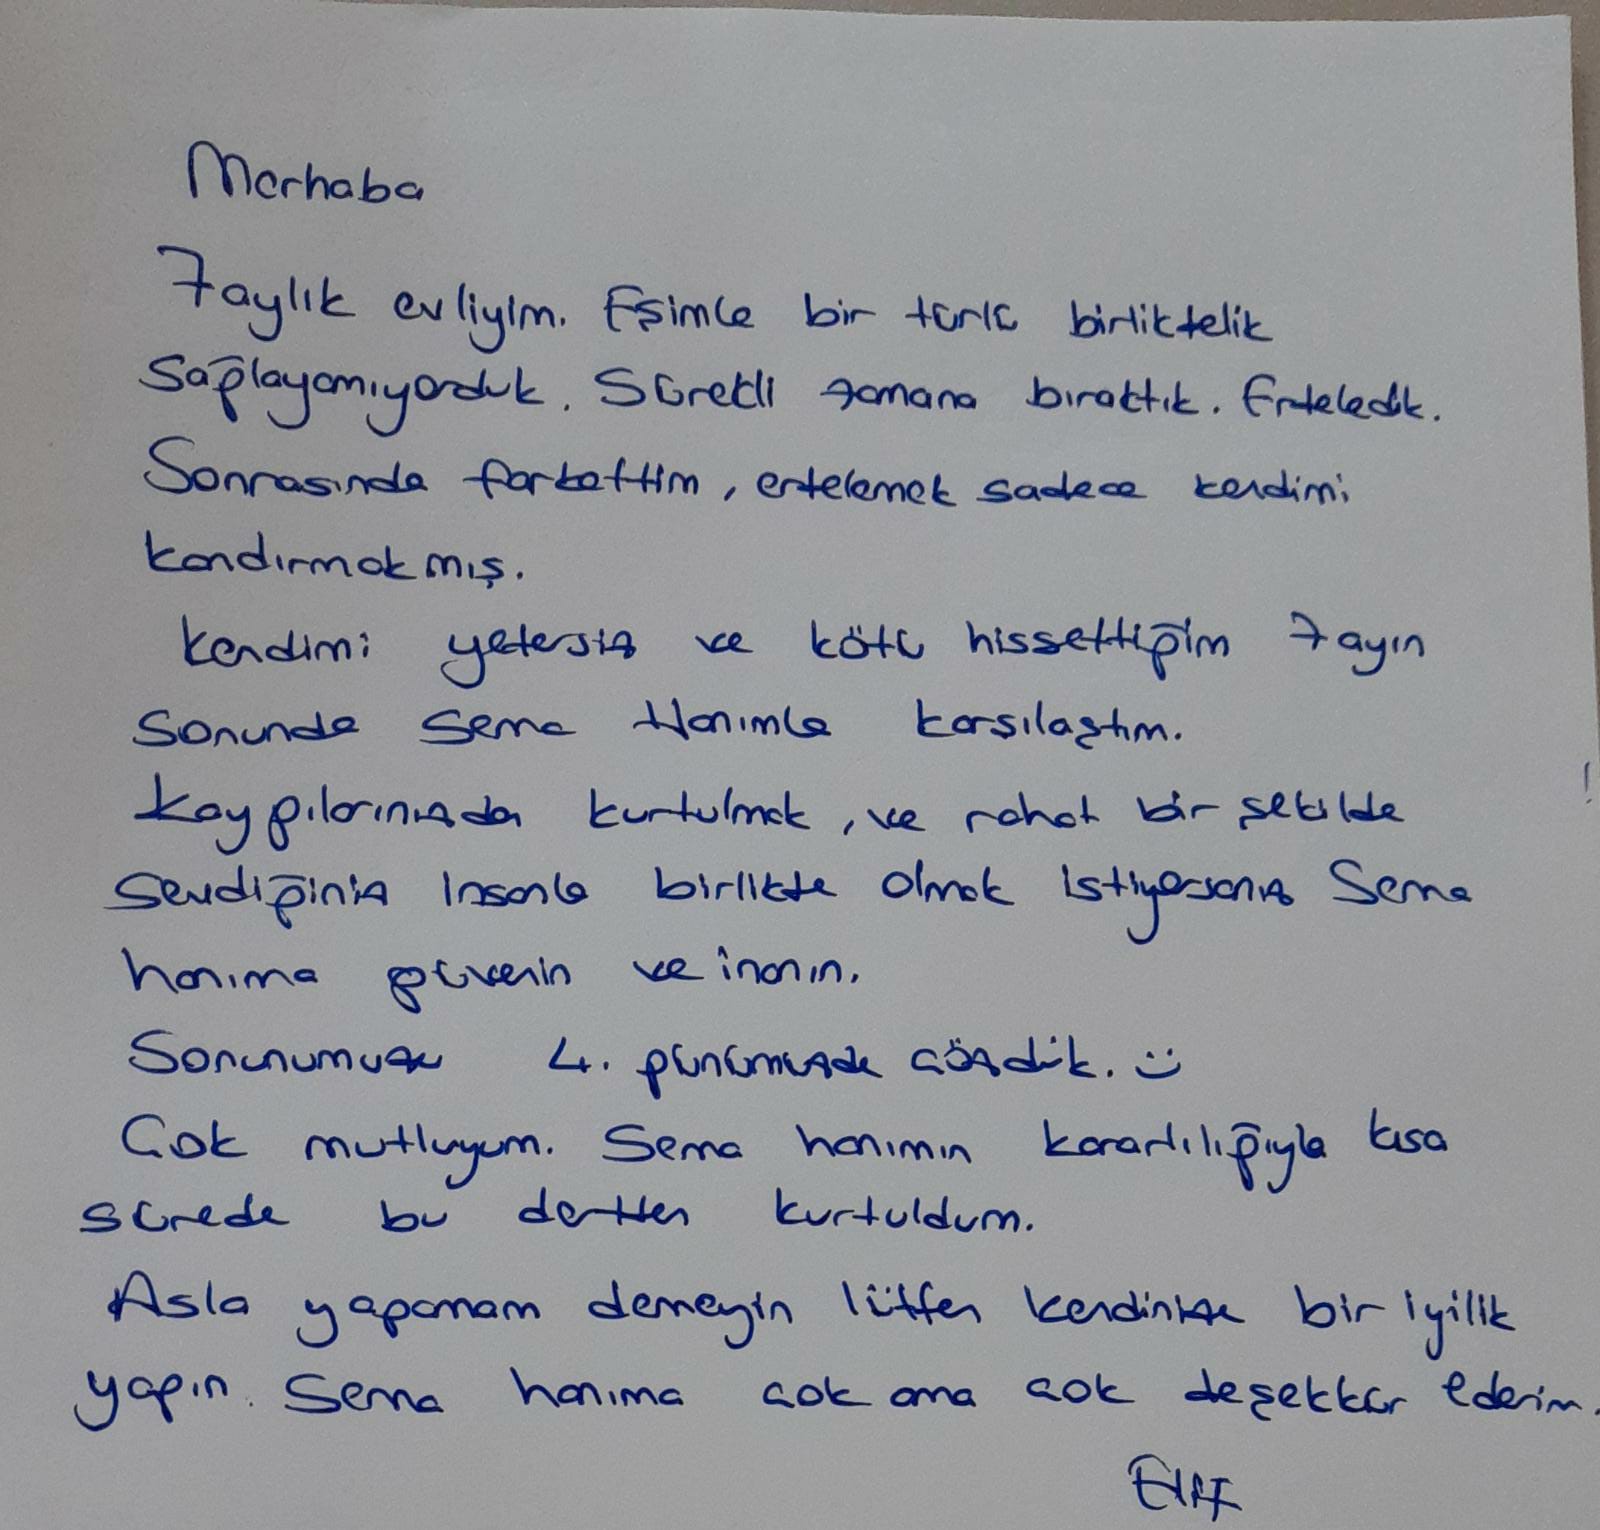 Merhaba
7 aylık evliyim. Eşimle bir türlü birliktelik
sağlayamıyorduk. Sürekli zamana bıraktık. Erteledik.
Sonrasında farkettim, ertelemek sadece kendimi
kandırmakmış.
Kendimi yetersiz ve kötü hissettiğim 7 ayın
sonunda Sema Hanımla karşılaştım.
Kaygılarınızdan kurtulmak, ve rahat bir şekilde
sevdiğiniz insanla birlikte olmak istiyorsanız Sema
hanıma güvenin ve inanın.
Sorunumuzu 4. günümüzde çözdük. :)
Çok mutluyum. Sema hanımın kararlılığıyla kısa
sürede bu dertten kurtuldum.
Asla yapamam demeyin lütfen kendinize bir iyilik
yapın. Sema hanıma çok ama çok teşekkür ederim.
Elif